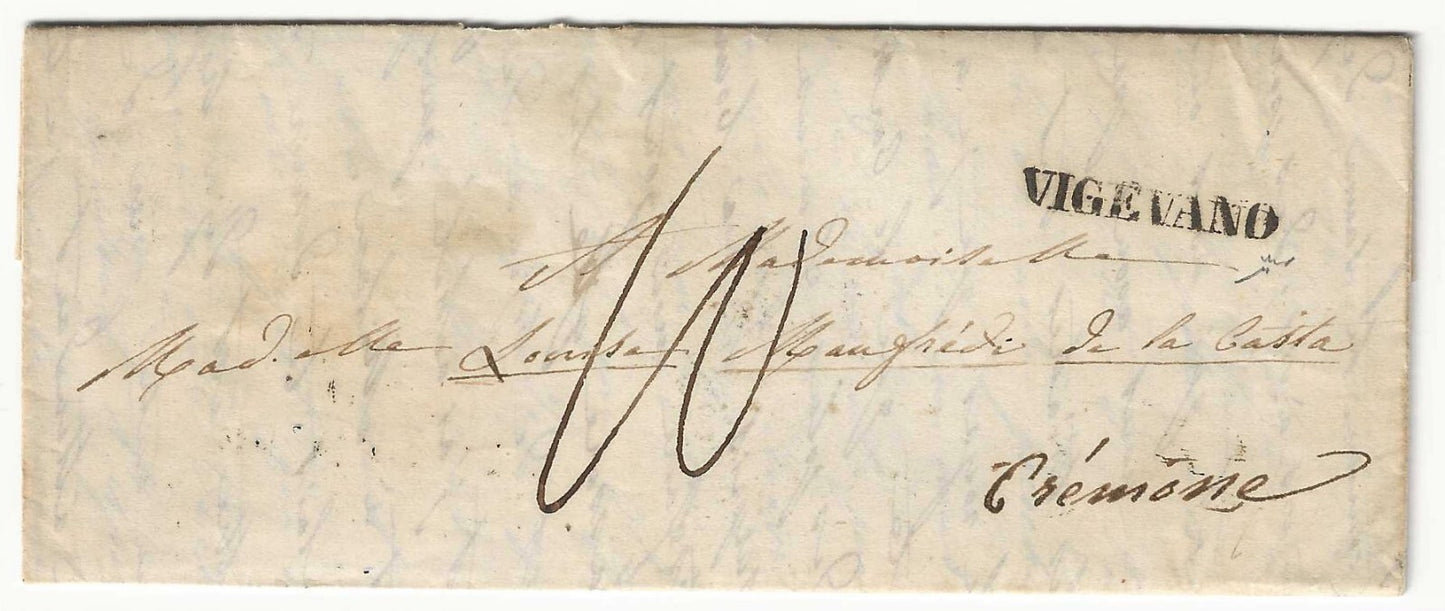 VIGEVANO
A Mademoiselle
Mad.elle Louise Manfrédi de la Costa
10
Crémone